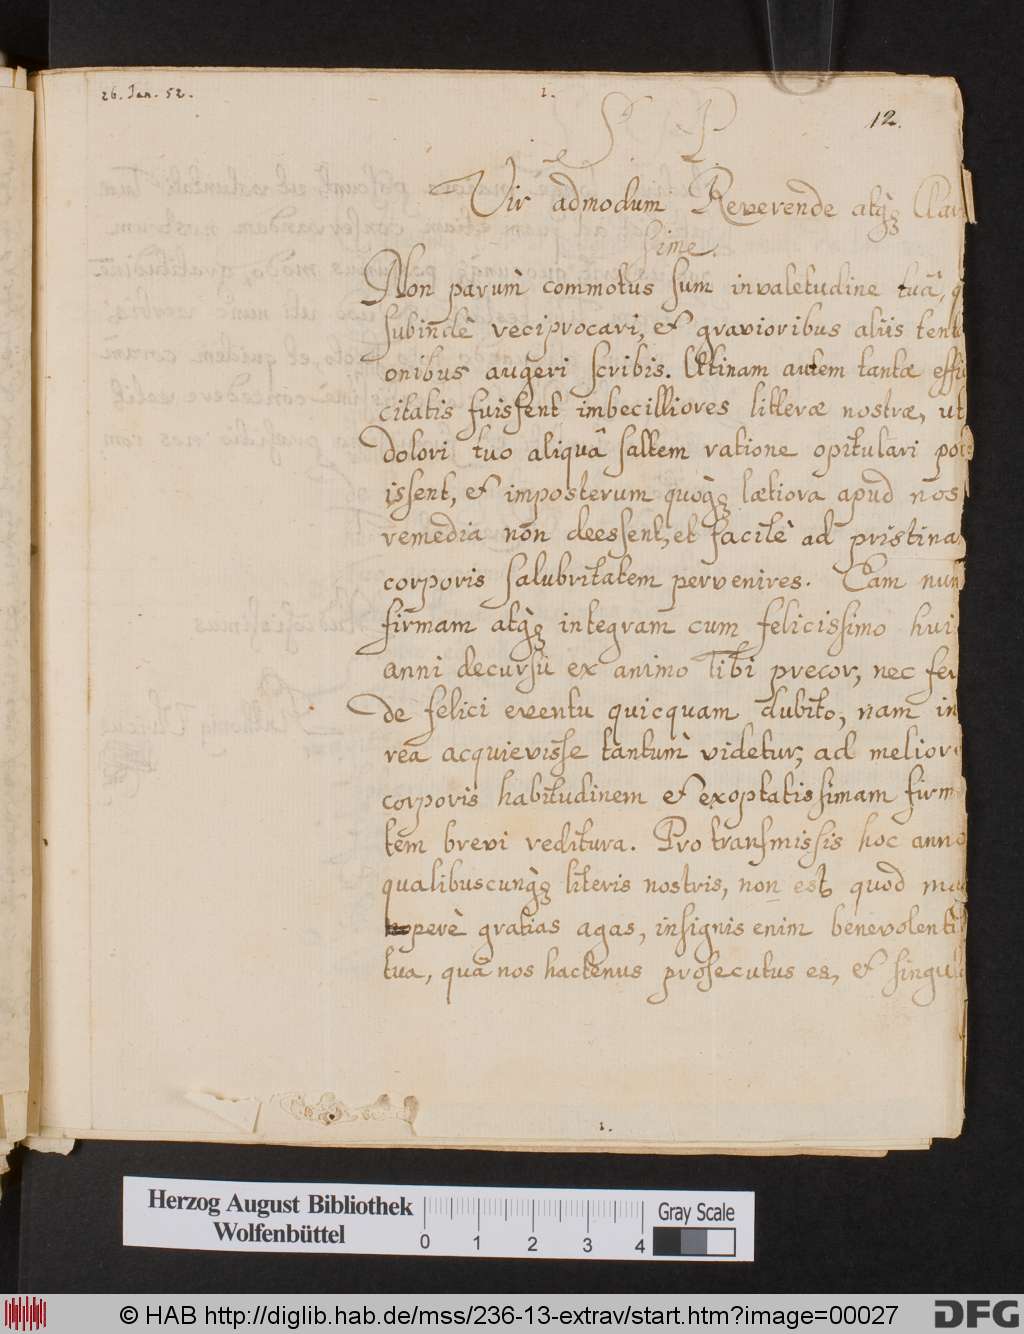 26. Jan. 52.
1.
12.
S P
Vir admodum Reverende atq̀ꝫ Clar
sime.
Non parùm commotus sum invaletudine tuâ, q
subindè reciprocari, et gravioribus aliis tent
onibus augeri scribis. Utinam autem tantæ effi
citatis fuissent imbecilliores litteræ nostræ, ut
dolori tuo aliquâ saltem ratione opitulari pot
issent, et imposterum quoq̀ꝫ lætiora apud nos
remedia non deessent, et facilè ad pristina
corporis salubritatem pervenires. Eam nun
firmam atq̀ꝫ integram cum felicissimo hui
anni decursu ex animo Tibi precor, nec fer
de felici eventu quicquam dubito, nam in
rea acquievisse tantùm videtur, ad melior
corporis habitudinem et exoptatissimam firm
tem brevi reditura. Pro transmissis hoc anno
qualibuscunq̀ꝫ literis nostris, non est quod ma
operè gratias agas, insignis enim benevolenti
tua, quâ nos hactenus prosecutus es, et singul
1.
Herzog August Bibliothek
Wolfenbüttel
0 1 2 3 4
Gray Scale
© HAB http://diglib.hab.de/mss/236-13-extrav/start.htm?image=00027
DFG